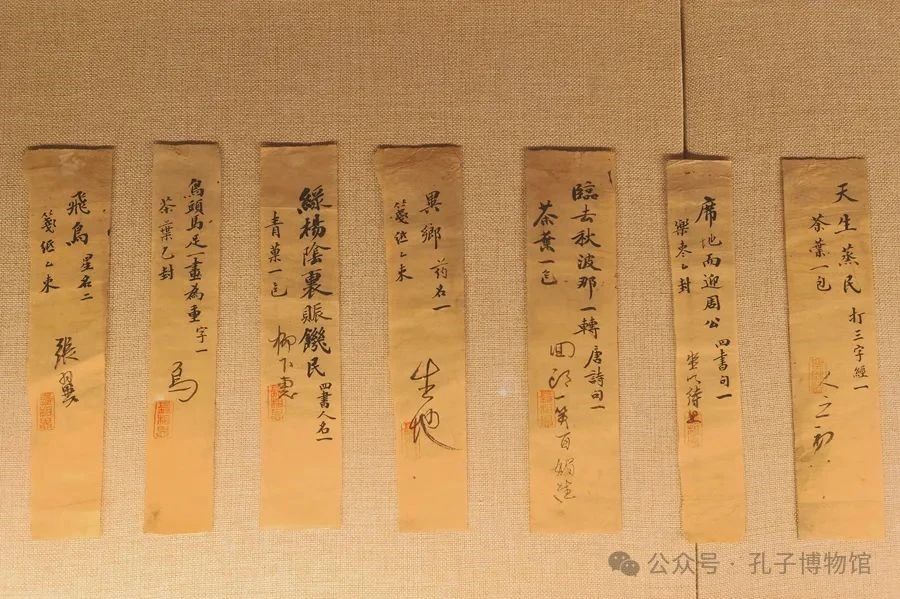 天生蒸民 打三字經一
茶葉一包
人之初
席地而迎周公 四書句一
坐以待旦
臨去秋波那一轉 唐詩句一
茶葉一包
回頭一笑百媚
異鄉 药名一
箋紙乙束
生地
綠楊陰裏賑饑民 四書人名一
青菓一包
柳下惠
鳥頭馬足一畫為重 字一
茶葉乙封
飛鳥 星名二
箋紙乙束
張翼
公众号 · 孔子博物馆